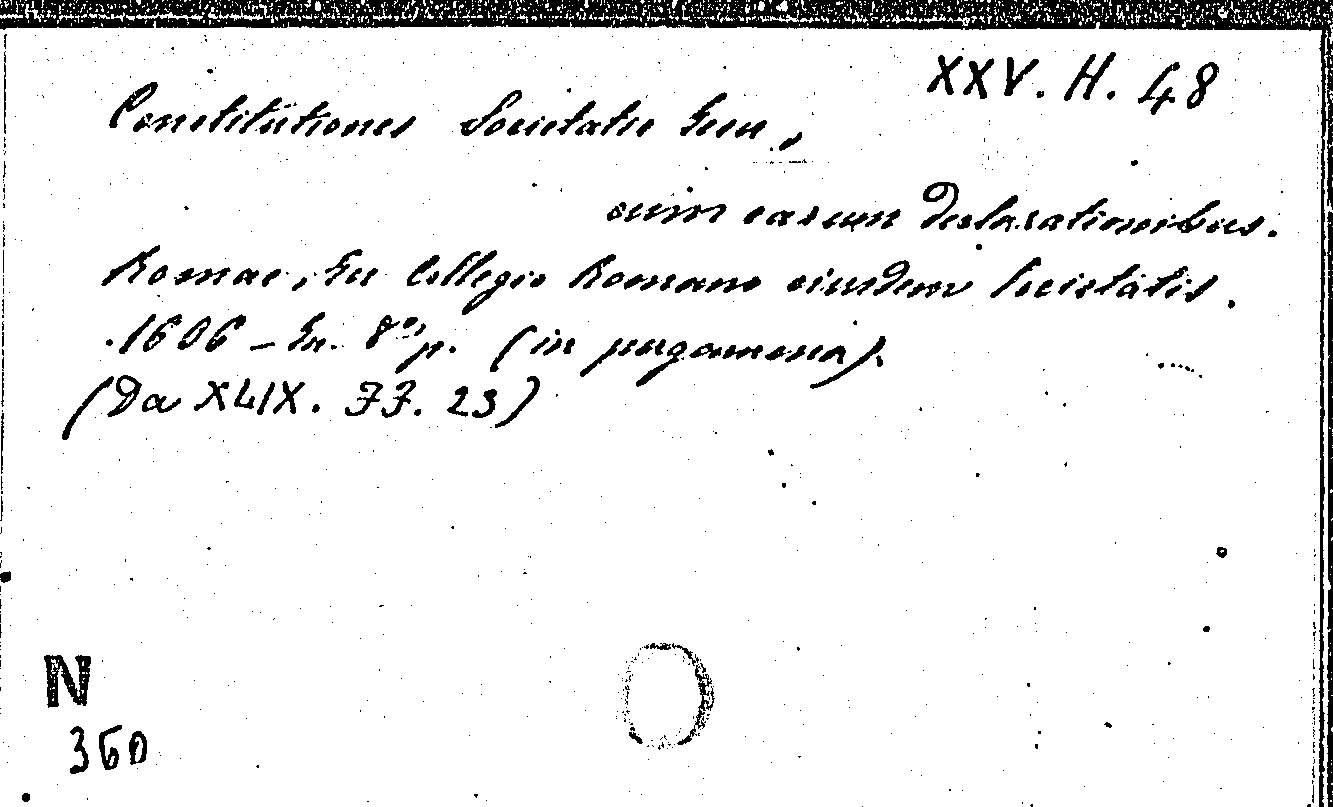 XXV. H. 48
Constitutiones Societatis Iesu,
cum earum Declarationibus.
Romae, In Collegio Romano eiusdem Societatis.
1606 - In. 8° p. (in pergamena).
(Da XLIX. FF. 23)
N
360